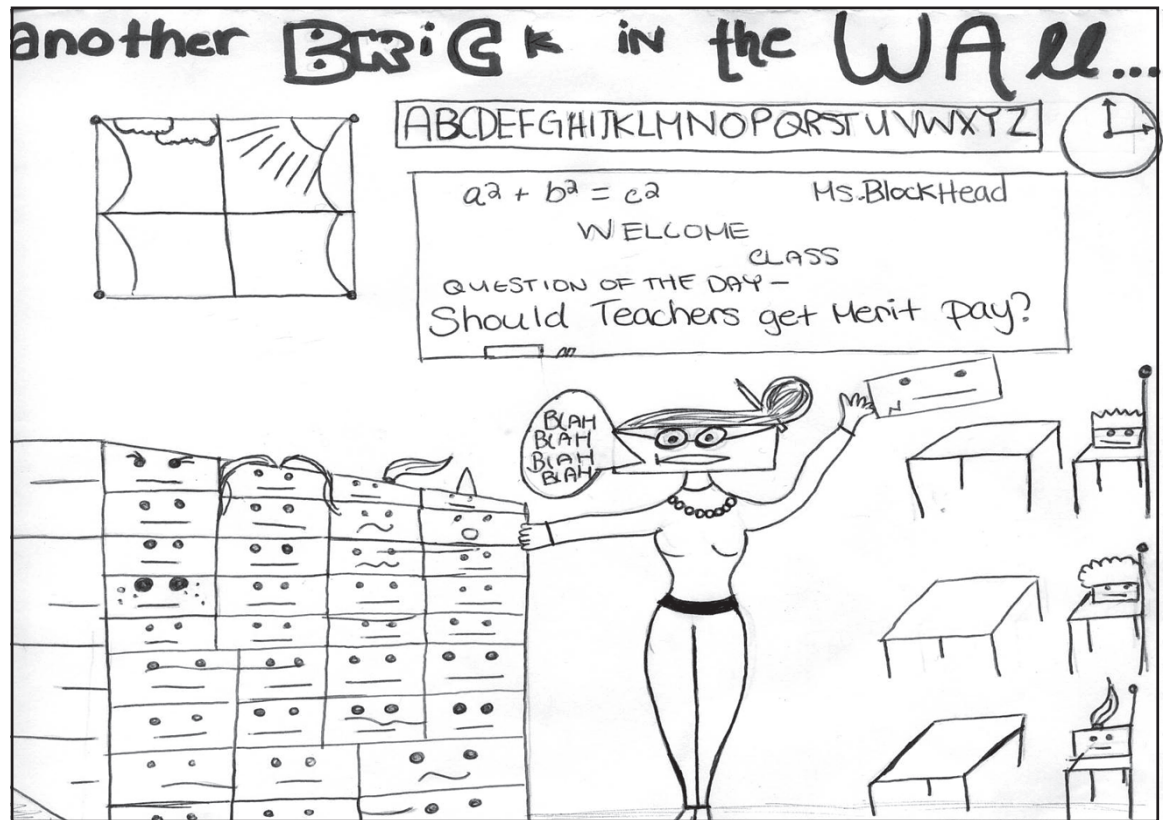 another BRiCk iN the WAll...
ABCDEFGHIJKLMNOPQRSTUVWXYZ
a² + b² = c² Ms. BlockHead
WELCOME
CLASS
QUESTION OF THE DAY –
Should Teachers get Merit Pay?
BLAH
BLAH
BLAH
BLAH